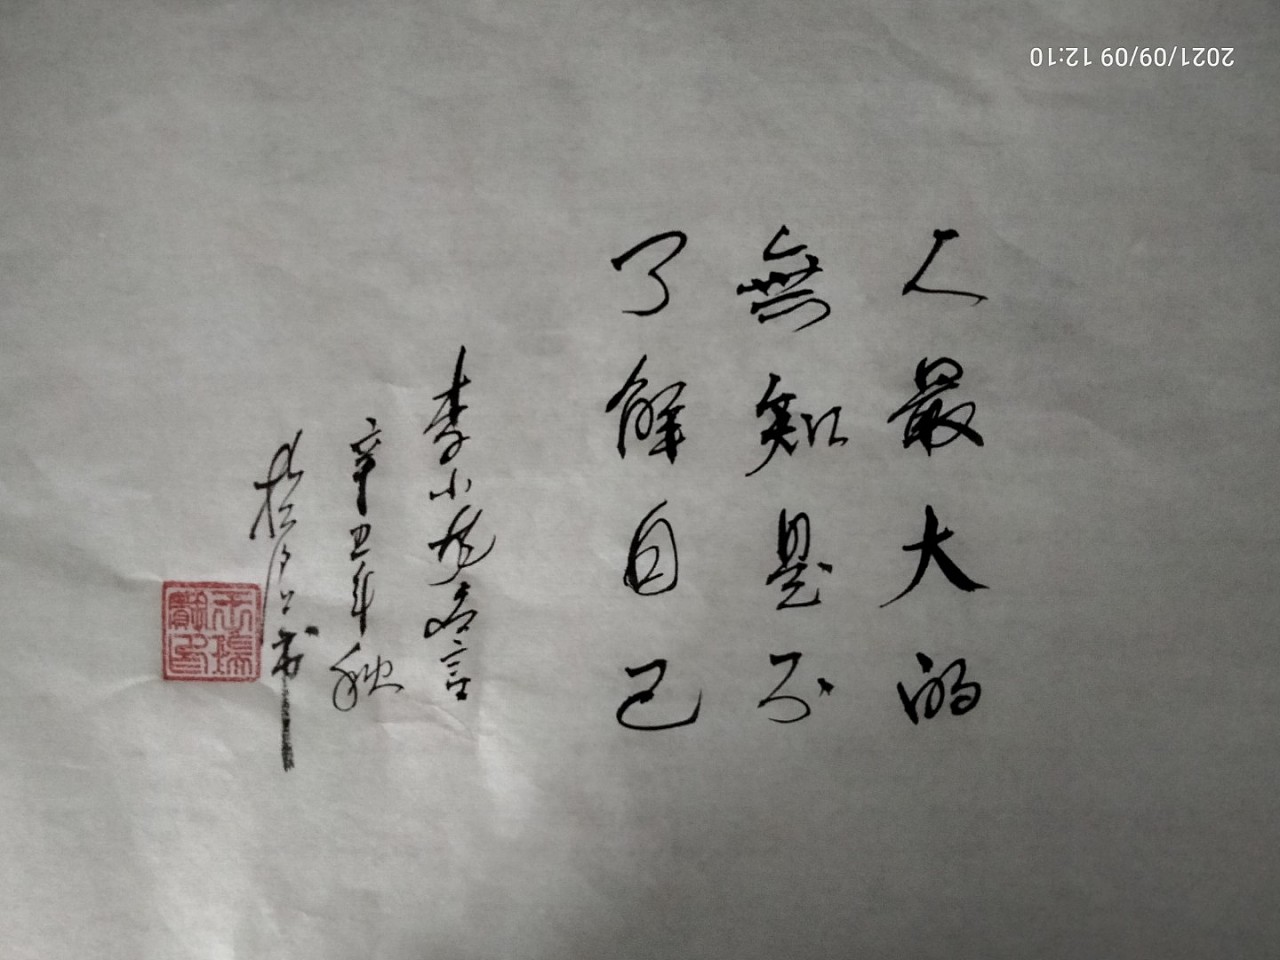 人最大的
無知是不
了解自己
李小龙名言
辛丑年秋
2021/09/09 12:10